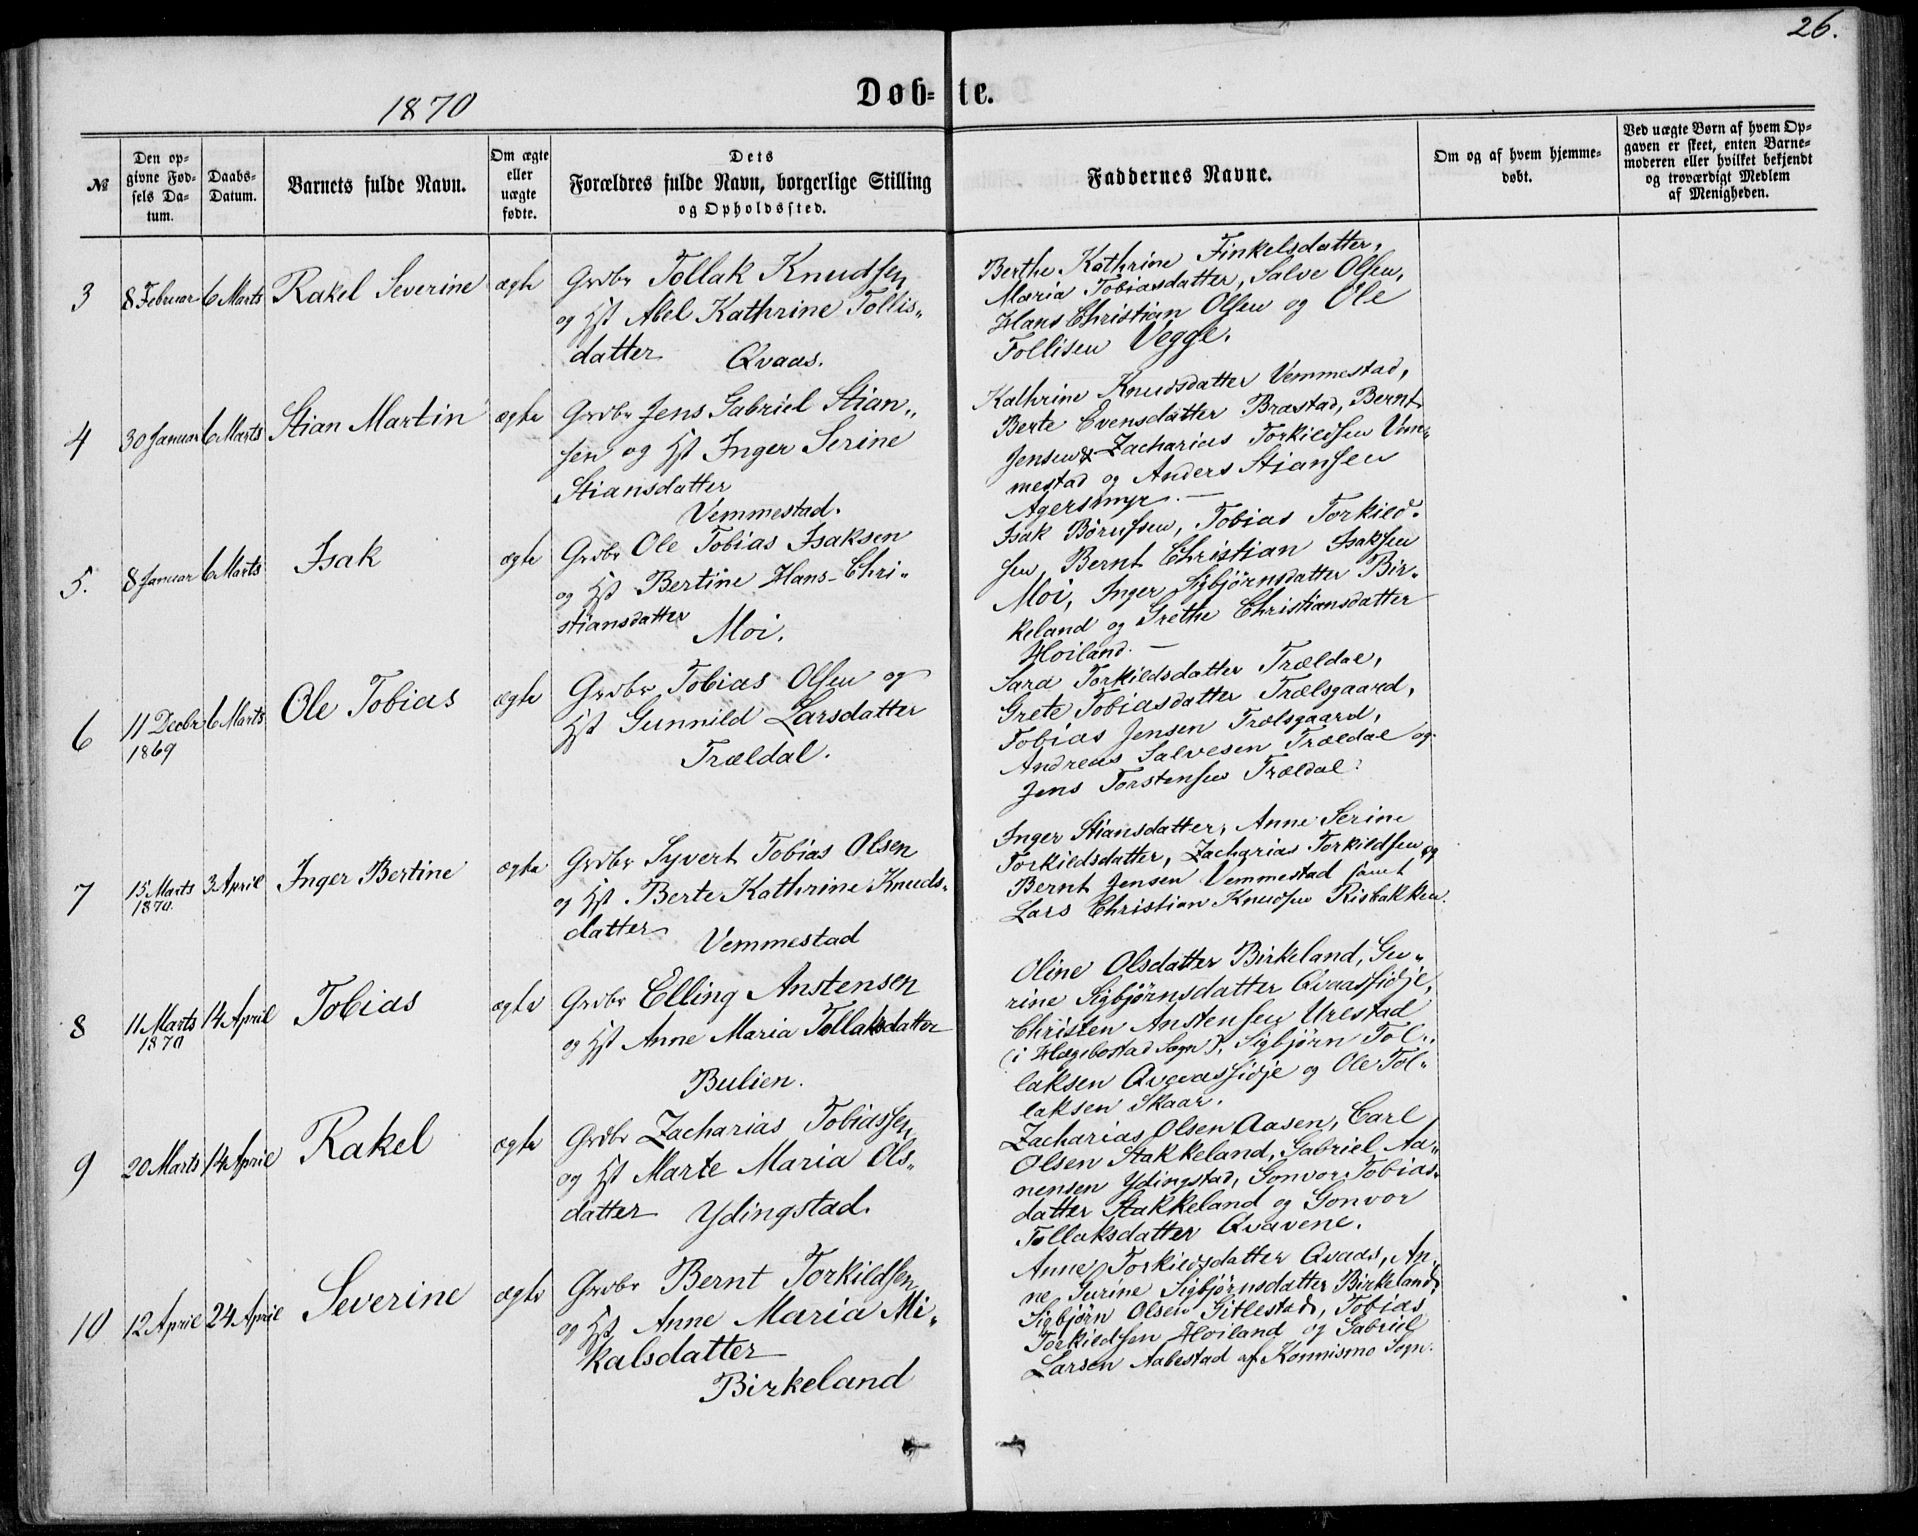 26.
1870
Døb- te.
№
Den op-
givne Fød-
sels Da-
tum.
Daabs-
Datum.
Barnets fulde Navn.
Om ægte
eller
uægte
fødte.
Dets
Forældres fulde Navn, borgerlige Stilling
og Opholdssted.
Faddernes Navne.
Om og af hvem hjemme-
døbt.
Ved uægte Børn af hvem Op-
gaven er skeet, enten Barne-
moderen eller hvilket bekjendt
og troværdigt Medlem
af Menigheden.
3
8 Februar
6 Marts
Rakel Severine
ægte
Grdbr Tollak Knudsen
og Hst Abel Kathrine Tollis„
datter Qvaas.
Berthe Kathrine Finkelsdatter,
Maria Tobiasdatter, Salve Olsen,
Hans Christian Olsen og Ole
Tollisen Vegge.
4
30 Januar
6 Marts
Stian Martin
ægte
Grdbr Jens Gabriel Stian„
sen og Hst Inger Serine
Stiansdatter
Vemmestad.
Kathrine Knudsdatter Vemmestad,
Berte Evensdatter Brastad, Bernt
Jensen & Zacharias Torkildsen Vem„
mestad og Anders Stiansen
Agersmyr. —
5.
8 Januar
6 Marts
Isak
ægte
Grdbr Ole Tobias Isaksen
og Hst Bertine Hans-Chri„
stiansdatter
Moi.
Isak Børufsen, Tobias Torkild„
sen, Bernt Christian Isaksen
Moi, Inger Sigbjørnsdatter Bir„
keland og Grethe Christiansdatter
Høiland. —
6
11 Decbr
1869
6 Marts
Ole Tobias
ægte
Grdbr Tobias Olsen og
Hst Gunnild Larsdatter
Trældal.
Sara Torkildsdatter Trældal,
Grete Tobiasdatter Trælsgaard,
Tobias Jensen Trælsgaard,
Andreas Salvesen Trældal og
Jens Torstensen Trældal.
7
15 Marts
1870
3 April
Inger Bertine
ægte
Grdbr Syvert Tobias Olsen
og Hst Berte Kathrine Knuds„
datter Vemmestad
Inger Stiansdatter, Anne Serine
Torkildsdatter, Zacharias Torkildsen og
Bernt Jensen Vemmestad samt
Lars Christian Knudsen Risbakken.
8
11 Marts
1870
14 April
Tobias
ægte
Grdbr Elling Anstensen
og Hst Anne Maria Tollaksdatter
Bulien.
Oline Olsdatter Birkeland, Gu„
rine Sigbjørnsdatter Qvaassidje,
Christen Anstensen Urestad
(i Hægebostad Sogn), Sigbjørn Tol„
laksen Qvaassidje og Ole Tol„
laksen Skaar.
9
20 Marts
14 April
Rakel
ægte
Grdbr Zacharias Tobiassen
og Hst Marte Maria Ols„
datter Ydingstad.
Zacharias Olsen Aasen, Carl
Olsen Stakkeland, Gabriel Aa„
nensen Ydingstad, Gonvor Tobias„
datter Stakkeland og Gonvor
Tollaksdatter Qvavene.
10
12 April
24 April
Severine
ægte
Grdbr Bernt Torkildsen
og Hst Anne Maria Mi„
kalsdatter
Birkeland
Anne Torkildsdatter Qvaas, An„
ne Gurine Sigbjørnsdatter Birkeland,
Sigbjørn Olsen Gitlestad, Tobias
Torkildsen Høiland og Gabriel
Larsen Aabestad af Konnismo Sogn.